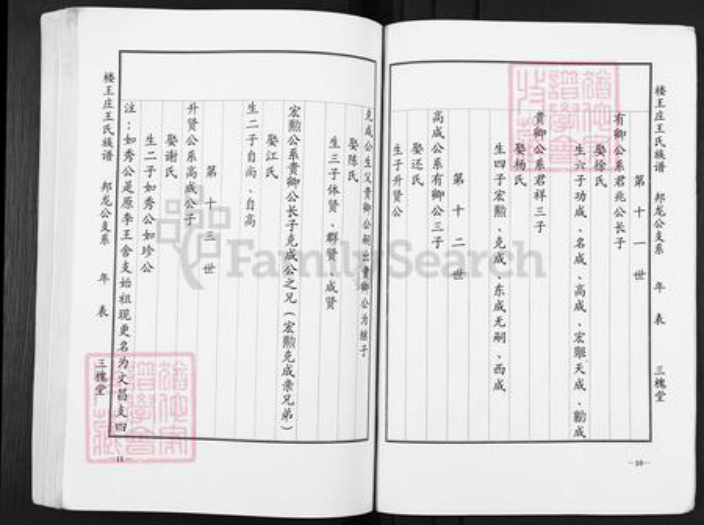 楼王庄王氏族谱 邦龙公支系 年表 三槐堂
第十一世
有卿公系君兆公长子
娶徐氏
生六子功成、名成、高成、宏聚天成、勷成
贵卿公系君祥三子
娶杨氏
生四子宏勲、克成、东成无嗣、西成
第十二世
高成公系有卿公三子
娶还氏
生子升贤公
—10—
克成公生父贵卿公嗣出贵卿公为继子
娶陈氏
生三子体贤、群贤、成贤
宏勲公系贵卿公长子克成公之兄（宏勲克成亲兄弟）
娶江氏
生二子自尚、自高
第十三世
升贤公系高成公子
娶谢氏
生二子如秀公如珍公
注：如秀公是原李王舍支始祖现更名为文昌支四
楼王庄王氏族谱 邦龙公支系 年表 三槐堂
—11—
FamilySearch